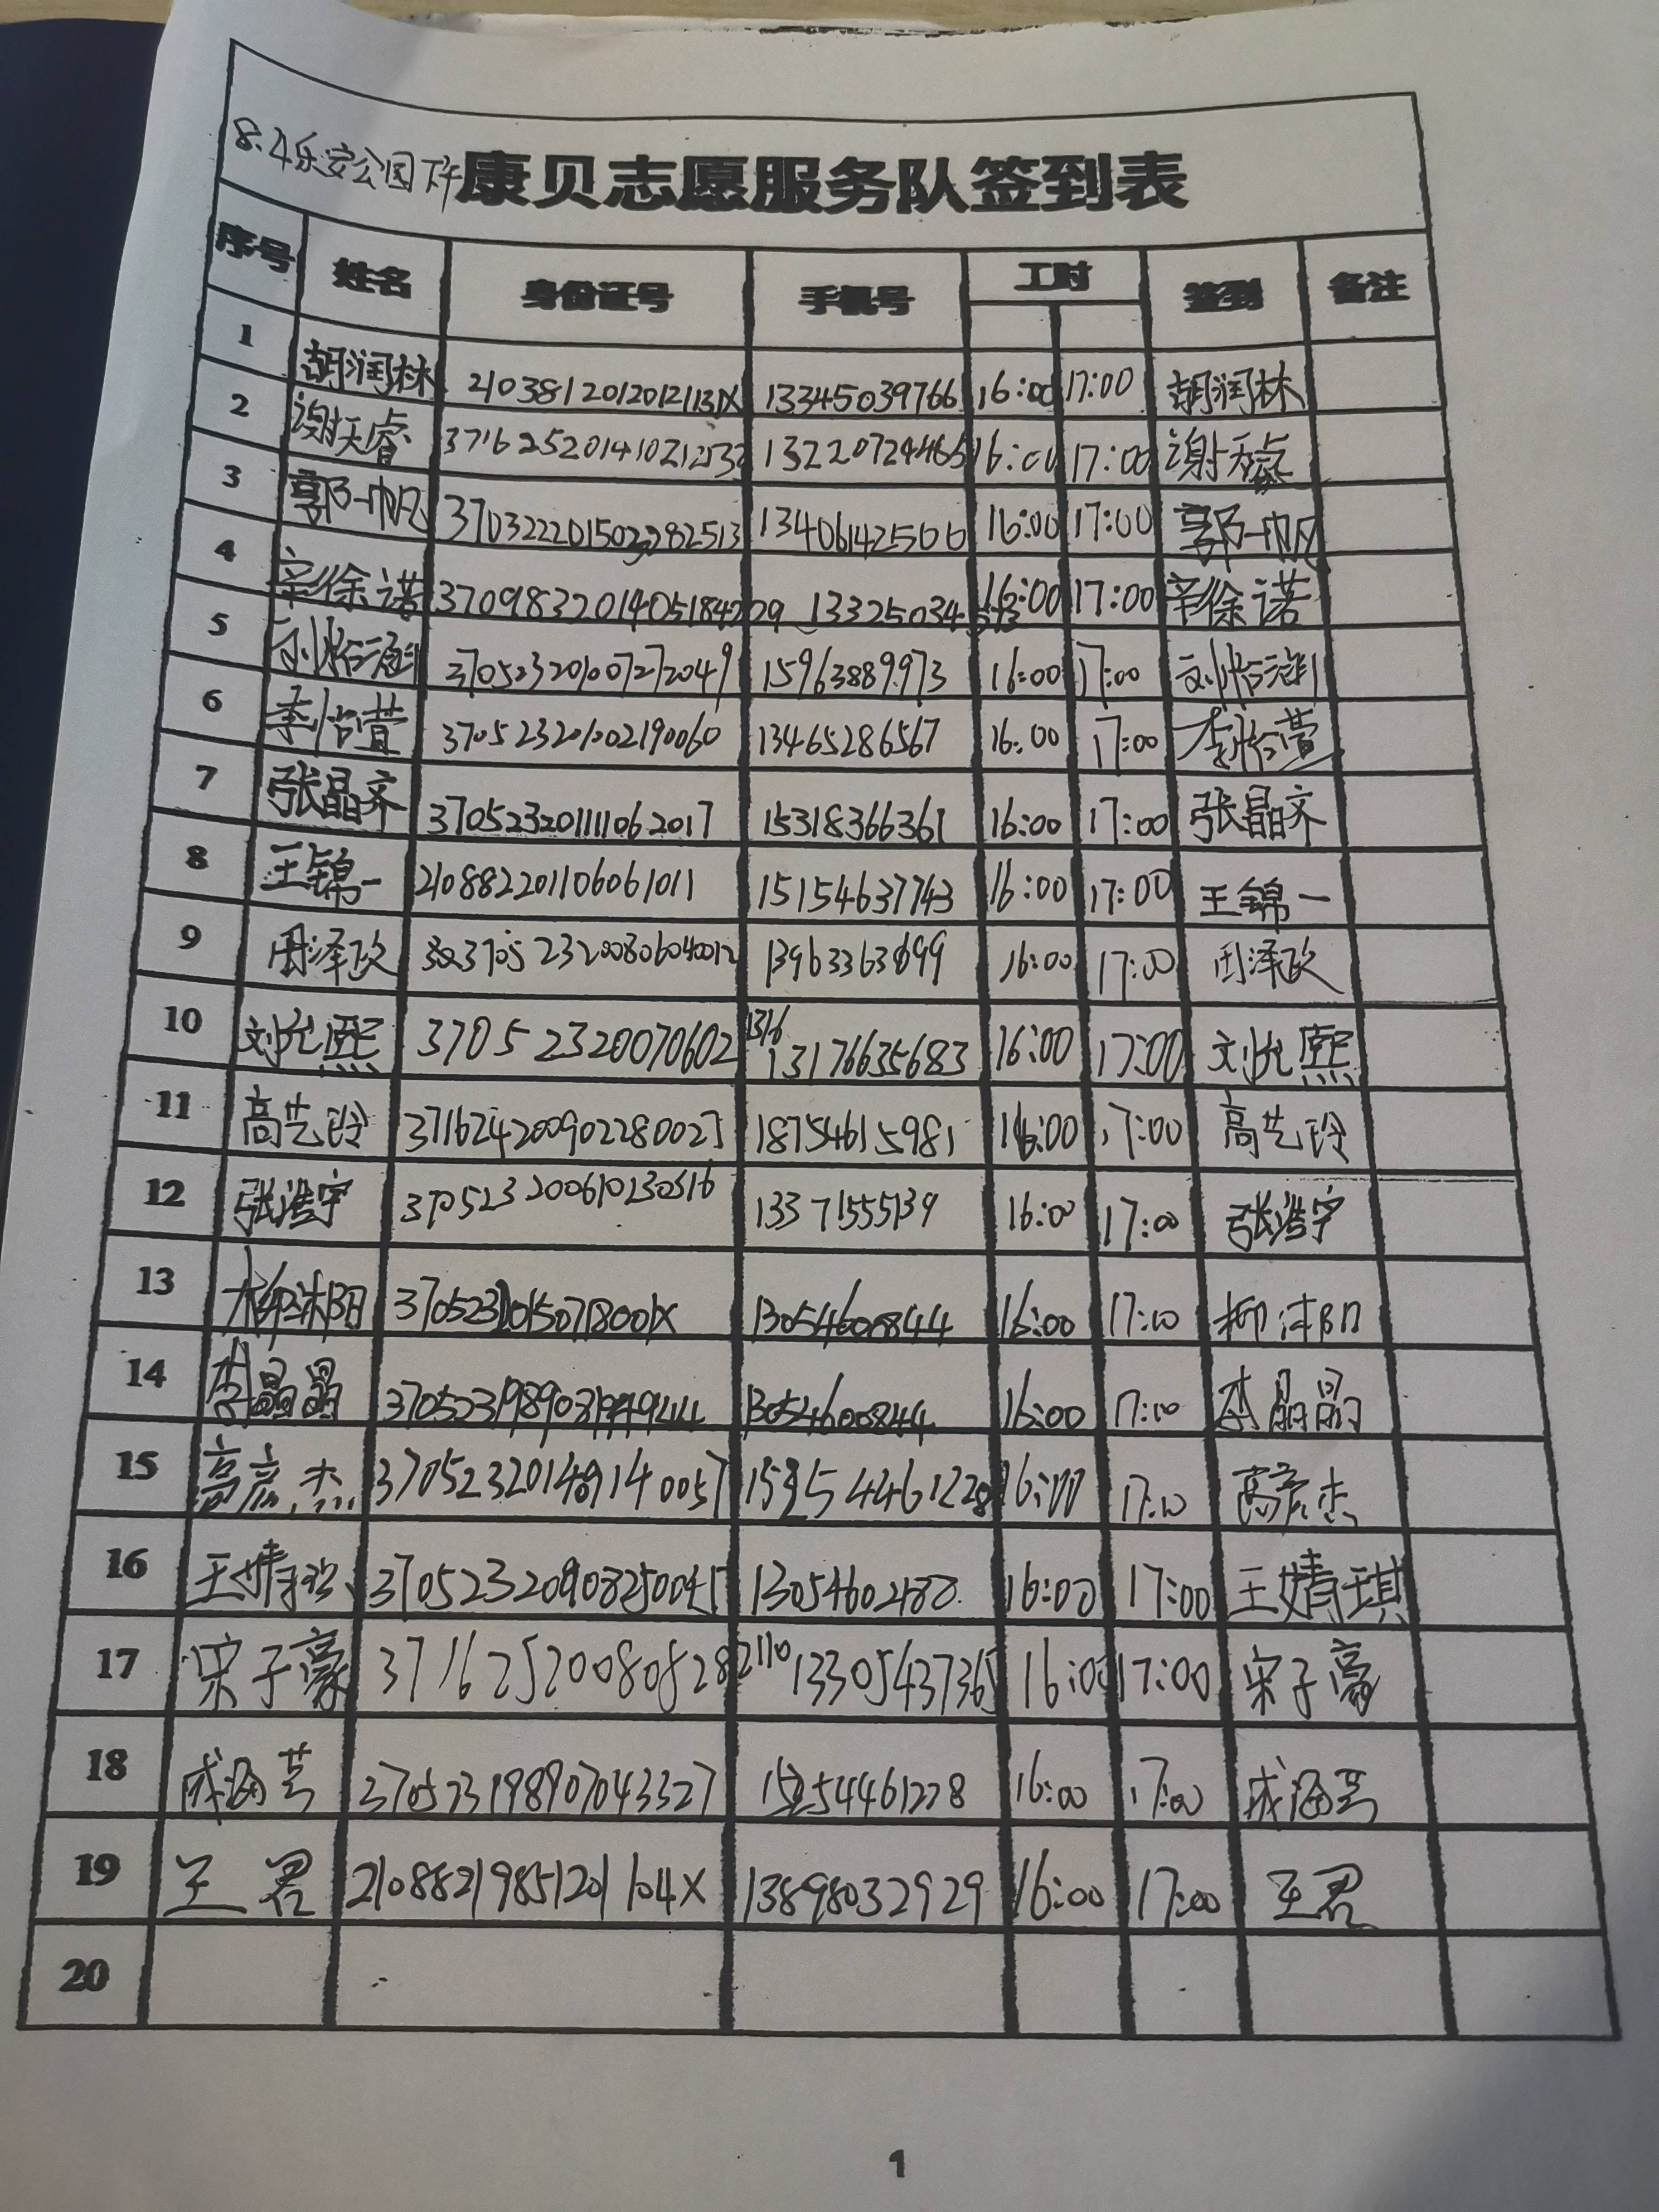 8.4乐安公园下午 康贝志愿服务队签到表
序号 姓名 身份证号 手机号 工时 签到 备注
1 胡润林 13345039766 16:00 17:00 胡润林
2 谢天睿 16:00 17:00
3 郭一帆 13406142506 16:00 17:00 郭一帆
4 辛徐诺 16:00 17:00 辛徐诺
5 370523201007272049 15963889973 16:00 17:00
6 李怡萱 370523201002190060 13465286567 16:00 17:00 李怡萱
7 张晶齐 370523201111062017 15318366361 16:00 17:00 张晶齐
8 王锦一 210882201106061011 15154637743 16:00 17:00 王锦一
9 370523200806040012 16:00 17:00
10 刘允熙 37052320070602 1316 13176635683 16:00 17:00 刘允熙
11 高艺玲 18754615981 16:00 17:00 高艺玲
12 张浩宇 370523200610230316 13371555139 16:00 17:00 张浩宇
13 柳沐阳 37052320150718001X 13054600844 16:00 17:00 柳沐阳
14 李晶晶 13054600844 16:00 17:00 李晶晶
15 高彦杰 16:00 17:00 高彦杰
16 王婧琪 16:00 17:00 王婧琪
17 宋子豪 371625200808282110 13305437365 16:00 17:00 宋子豪
18 370523198907043327 15254461228 16:00 17:00
19 王君 21088219851201104X 13898032929 16:00 17:00 王君
20
1